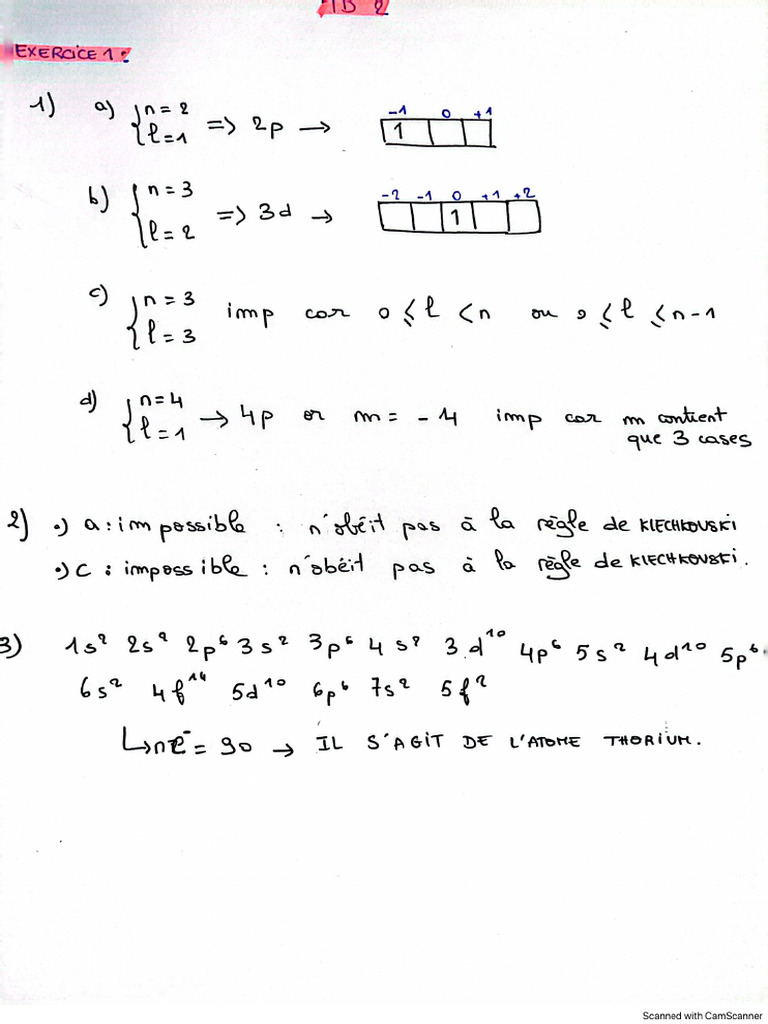 TD 2
EXERCICE 1:
1) a) { n = 2 l = 1 => 2p → -1 0 +1 1
b) { n = 3 l = 2 => 3d → -2 -1 0 +1 +2 1
c) { n = 3 l = 3 imp car 0 ⩽ l < n ou 0 ⩽ l ⩽ n-1
d) { n = 4 l = 1 → 4p or m = -4 imp car m contient
que 3 cases
2) •) a : impossible : n'obéit pas à la règle de KLECHKOWSKI
•) c : impossible : n'obéit pas à la règle de KLECHKOWSKI.
3) 1s² 2s² 2p⁶ 3s² 3p⁶ 4s² 3d¹⁰ 4p⁶ 5s² 4d¹⁰ 5p⁶
6s² 4f¹⁴ 5d¹⁰ 6p⁶ 7s² 5f²
↳ ne⁻ = 90 → IL S'AGIT DE L'ATOME THORIUM.
Scanned with CamScanner